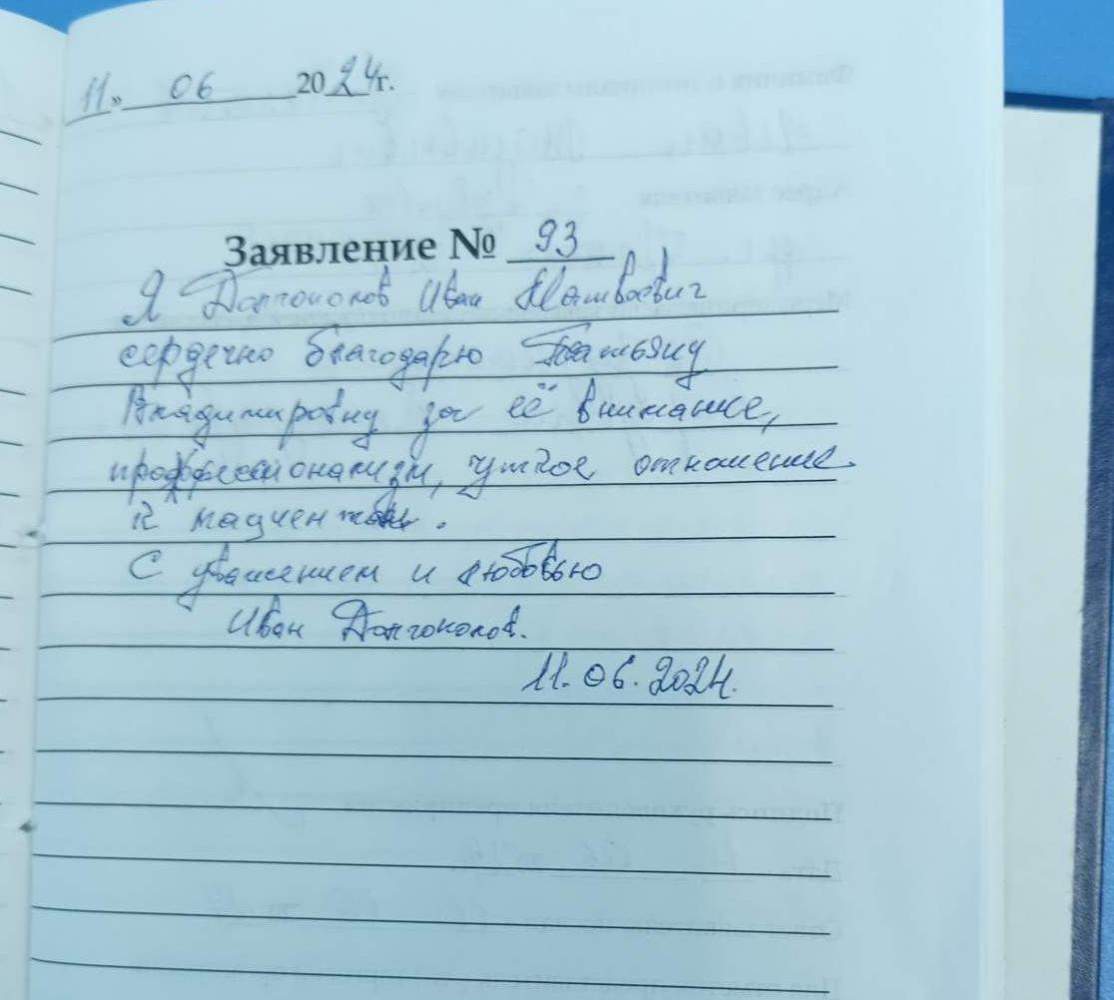 11» 06 2024г.
Заявление № 93
Я Долгополов Иван Матвеевич
сердечно благодарю Татьяну
Владимировну за её внимание,
профессионализм, чуткое отношение
к пациентам.
С уважением и любовью
Иван Долгополов.
11.06.2024.